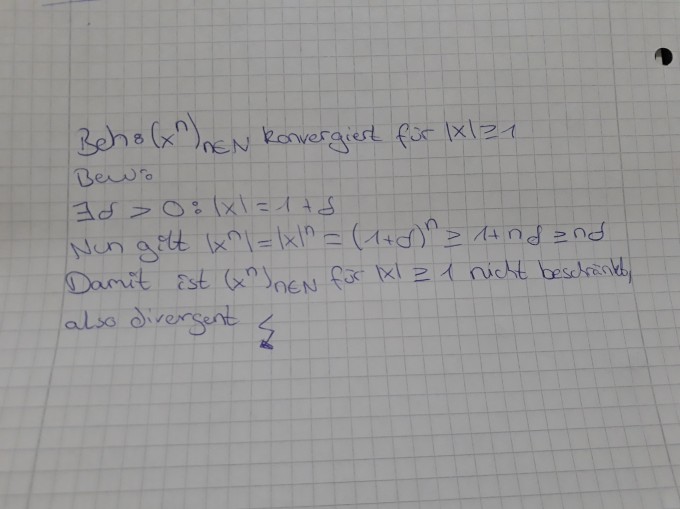 Beh: (xⁿ)n∈N konvergiert für |x| ≥ 1
Bew:
∃δ > 0: |x| = 1 + δ
Nun gilt |xⁿ| = |x|ⁿ = (1+δ)ⁿ ≥ 1+nδ ≥ nδ
Damit ist (xⁿ)n∈N für |x| ≥ 1 nicht beschränkt,
also divergent ↯